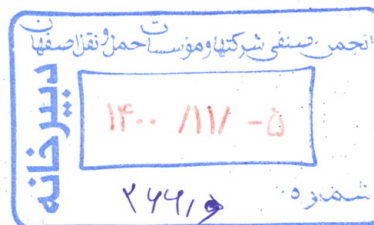 انجمن صنفی شرکتها و مؤسسات حمل و نقل اصفهان
دبیرخانه
۱۴۰۰ /۱۱/ -۵
شماره